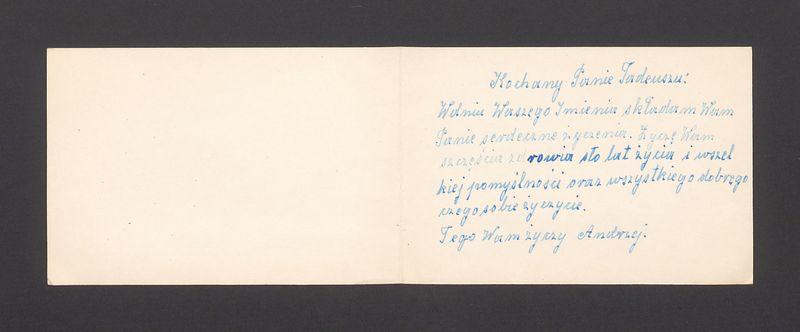 Kochany Panie Tadeuszu!
W dniu Waszego Imienia składam Wam
Panie serdeczne życzenia. Życzę Wam
szczęścia zdrowia sto lat życia i wszel
kiej pomyślności oraz wszystkiego dobrego
czego sobie życzycie.
Tego Wam życzy Andrzej.